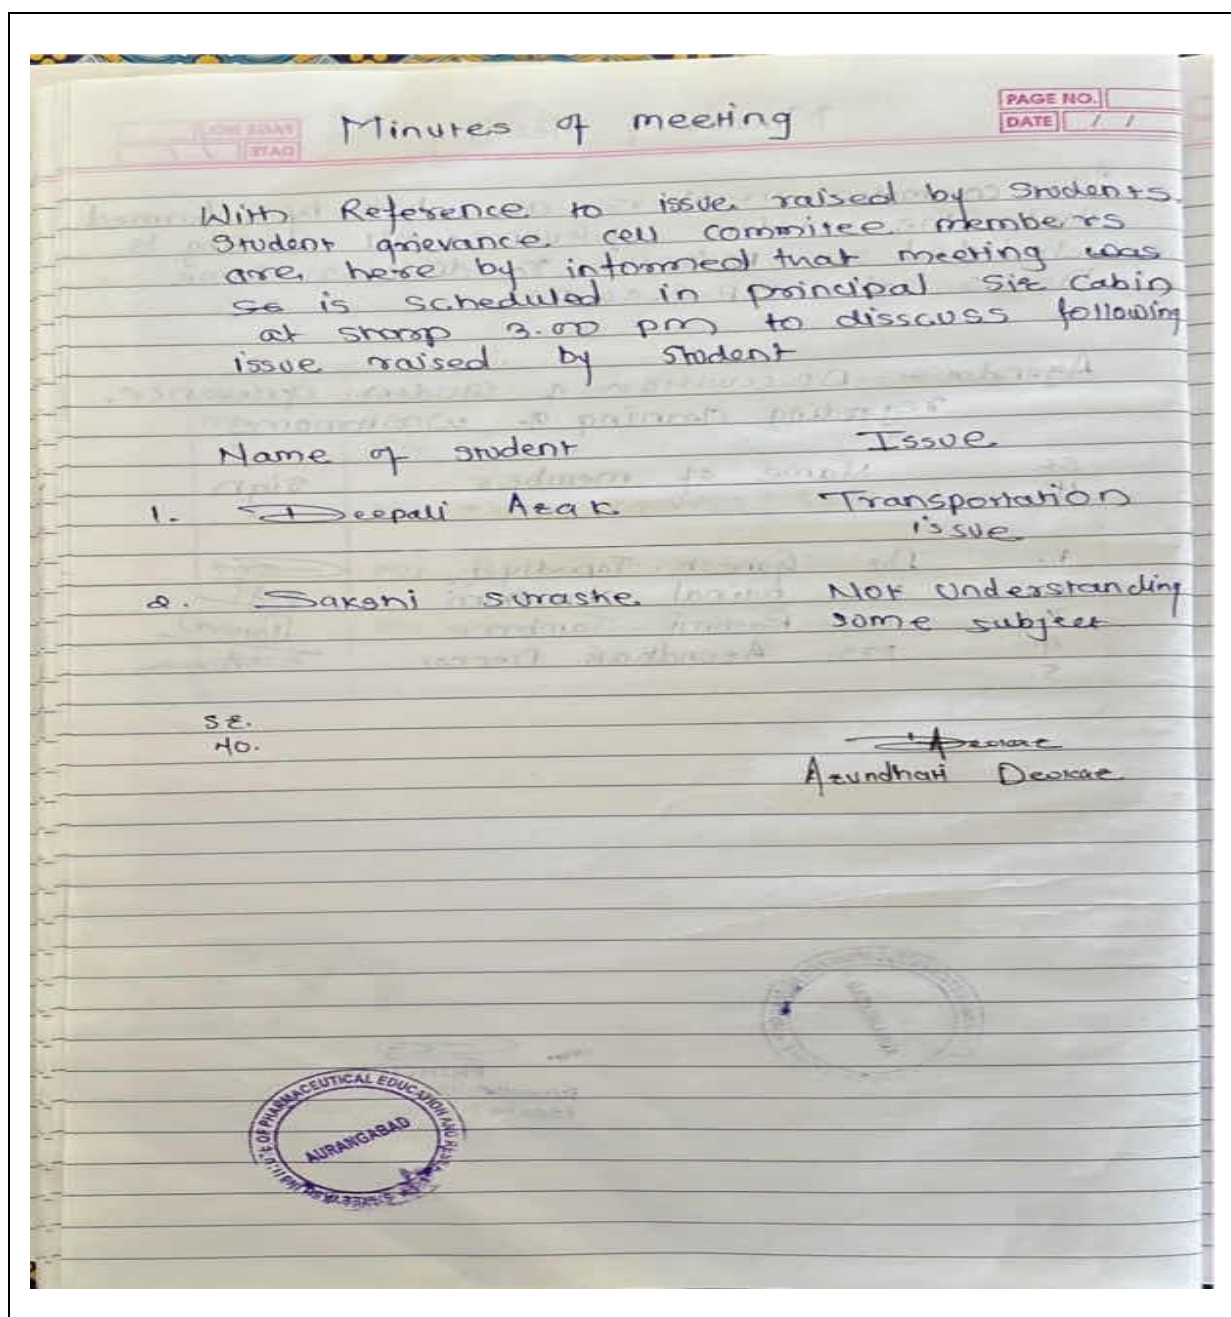 Minutes of meeting
PAGE NO.
DATE / /
With Reference to issue raised by Students
Student grievance cell commitee members
are here by informed that meeting was
is scheduled in principal Sir Cabin
at sharp 3.00 pm to disscuss following
issue raised by Student
Name of student Issue
1. Deepali Azak Transportation
issue
2. Sakshi Surashe Not Understanding
some subject
Sr.
No.
Arundhati Deokar
OF PHARMACEUTICAL EDUCATION AND
AURANGABAD